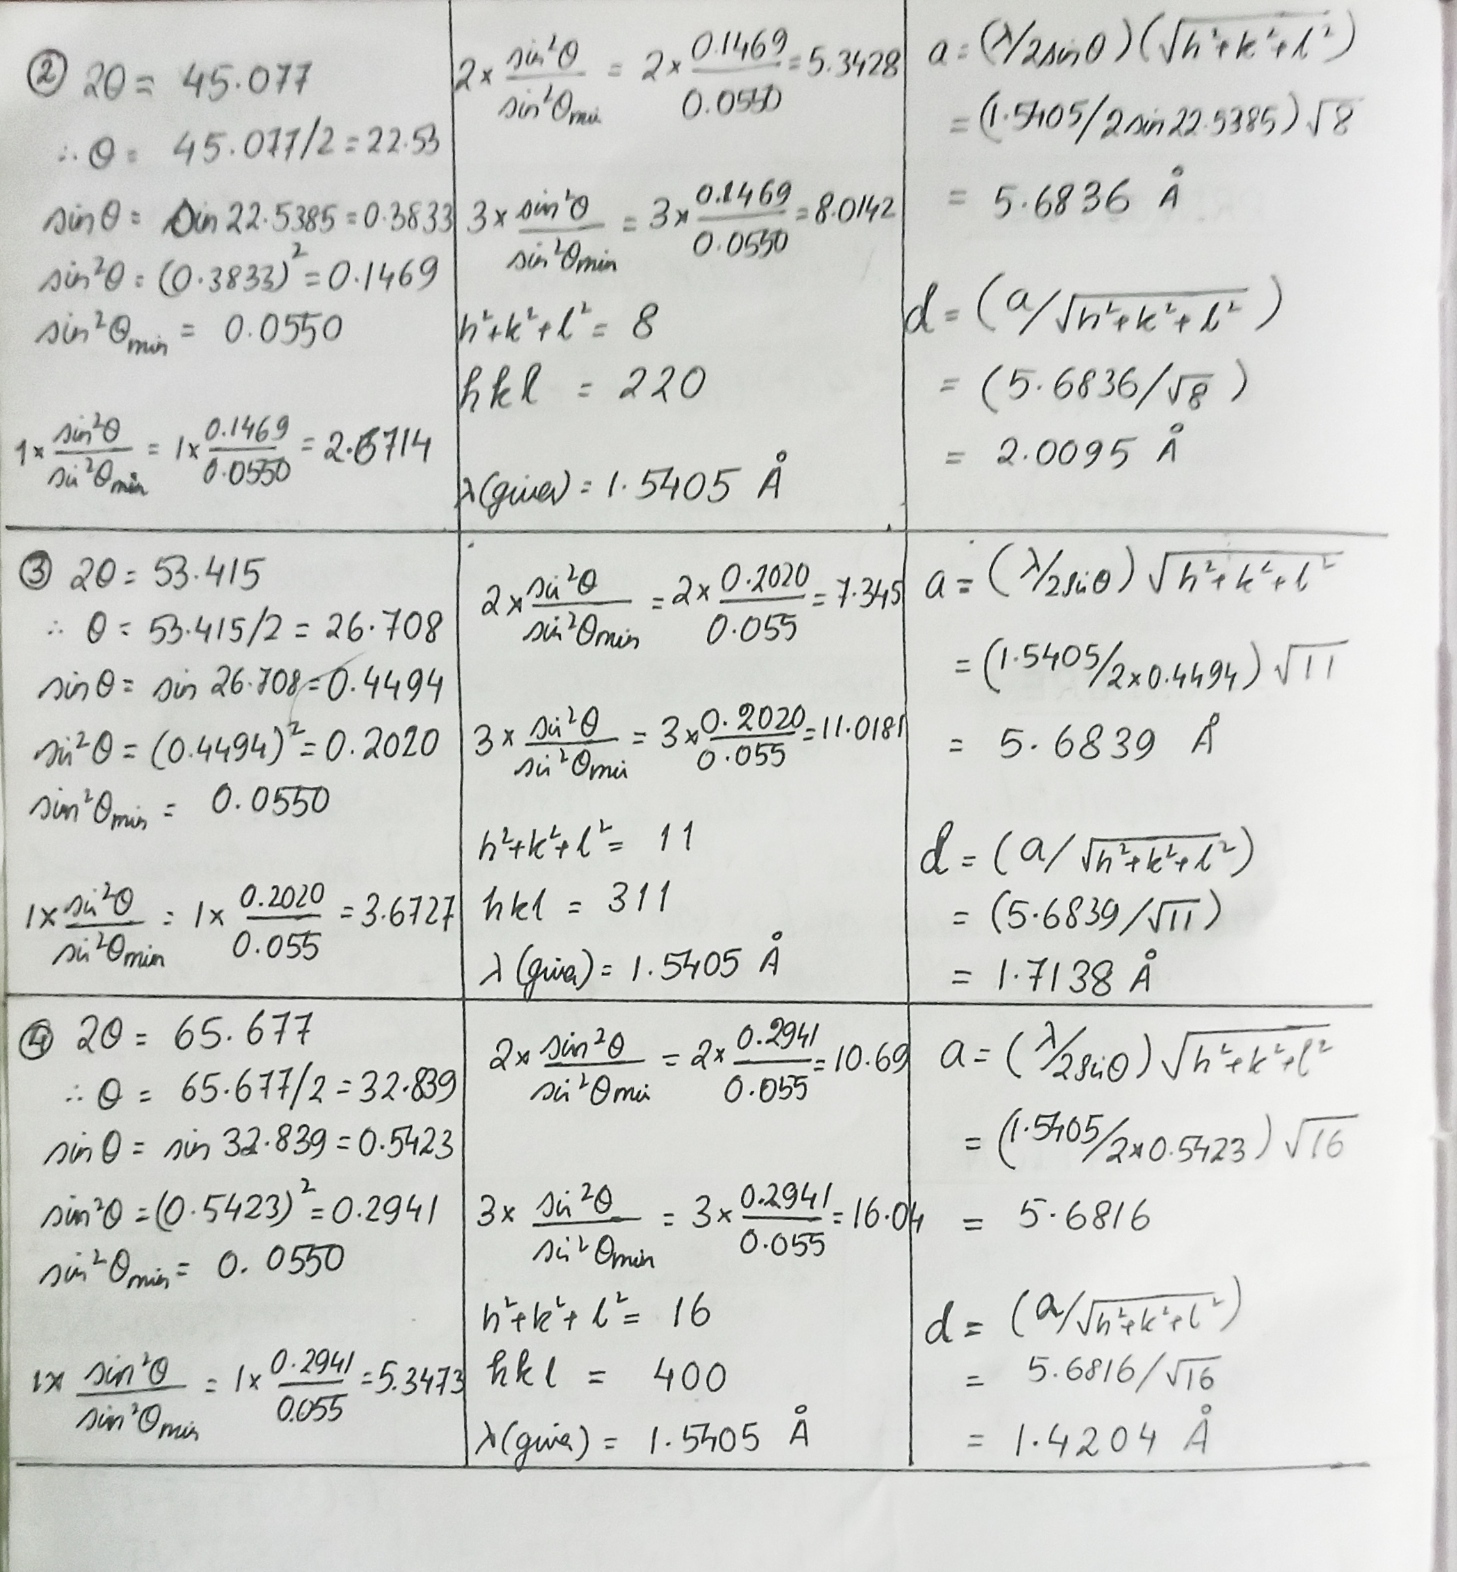 ② 2θ = 45.077
∴ θ = 45.077/2 = 22.53
sinθ = sin 22.5385 = 0.3833
sin²θ = (0.3833)² = 0.1469
sin²θmin = 0.0550
1 × sin²θ/sin²θmin = 1 × 0.1469/0.0550 = 2.6714
2 × sin²θ/sin²θmin = 2 × 0.1469/0.0550 = 5.3428
3 × sin²θ/sin²θmin = 3 × 0.1469/0.0550 = 8.0142
h²+k²+l² = 8
hkl = 220
λ(given) = 1.5405 Å
a = (λ/2sinθ)(√h²+k²+l²)
= (1.5405/2sin22.5385)√8
= 5.6836 Å
d = (a/√h²+k²+l²)
= (5.6836/√8)
= 2.0095 Å
③ 2θ = 53.415
∴ θ = 53.415/2 = 26.708
sinθ = sin 26.708 = 0.4494
sin²θ = (0.4494)² = 0.2020
sin²θmin = 0.0550
1 × sin²θ/sin²θmin = 1 × 0.2020/0.055 = 3.6727
2 × sin²θ/sin²θmin = 2 × 0.2020/0.055 = 7.345
3 × sin²θ/sin²θmin = 3 × 0.2020/0.055 = 11.0181
h²+k²+l² = 11
hkl = 311
λ(given) = 1.5405 Å
a = (λ/2sinθ)√h²+k²+l²
= (1.5405/2×0.4494)√11
= 5.6839 Å
d = (a/√h²+k²+l²)
= (5.6839/√11)
= 1.7138 Å
④ 2θ = 65.677
∴ θ = 65.677/2 = 32.839
sinθ = sin 32.839 = 0.5423
sin²θ = (0.5423)² = 0.2941
sin²θmin = 0.0550
1× sin²θ/sin²θmin = 1× 0.2941/0.055 = 5.3473
2× sin²θ/sin²θmin = 2× 0.2941/0.055 = 10.69
3× sin²θ/sin²θmin = 3× 0.2941/0.055 = 16.04
h²+k²+l² = 16
hkl = 400
λ(given) = 1.5405 Å
a = (λ/2sinθ)√h²+k²+l²
= (1.5405/2×0.5423)√16
= 5.6816
d = (a/√h²+k²+l²)
= 5.6816/√16
= 1.4204 Å